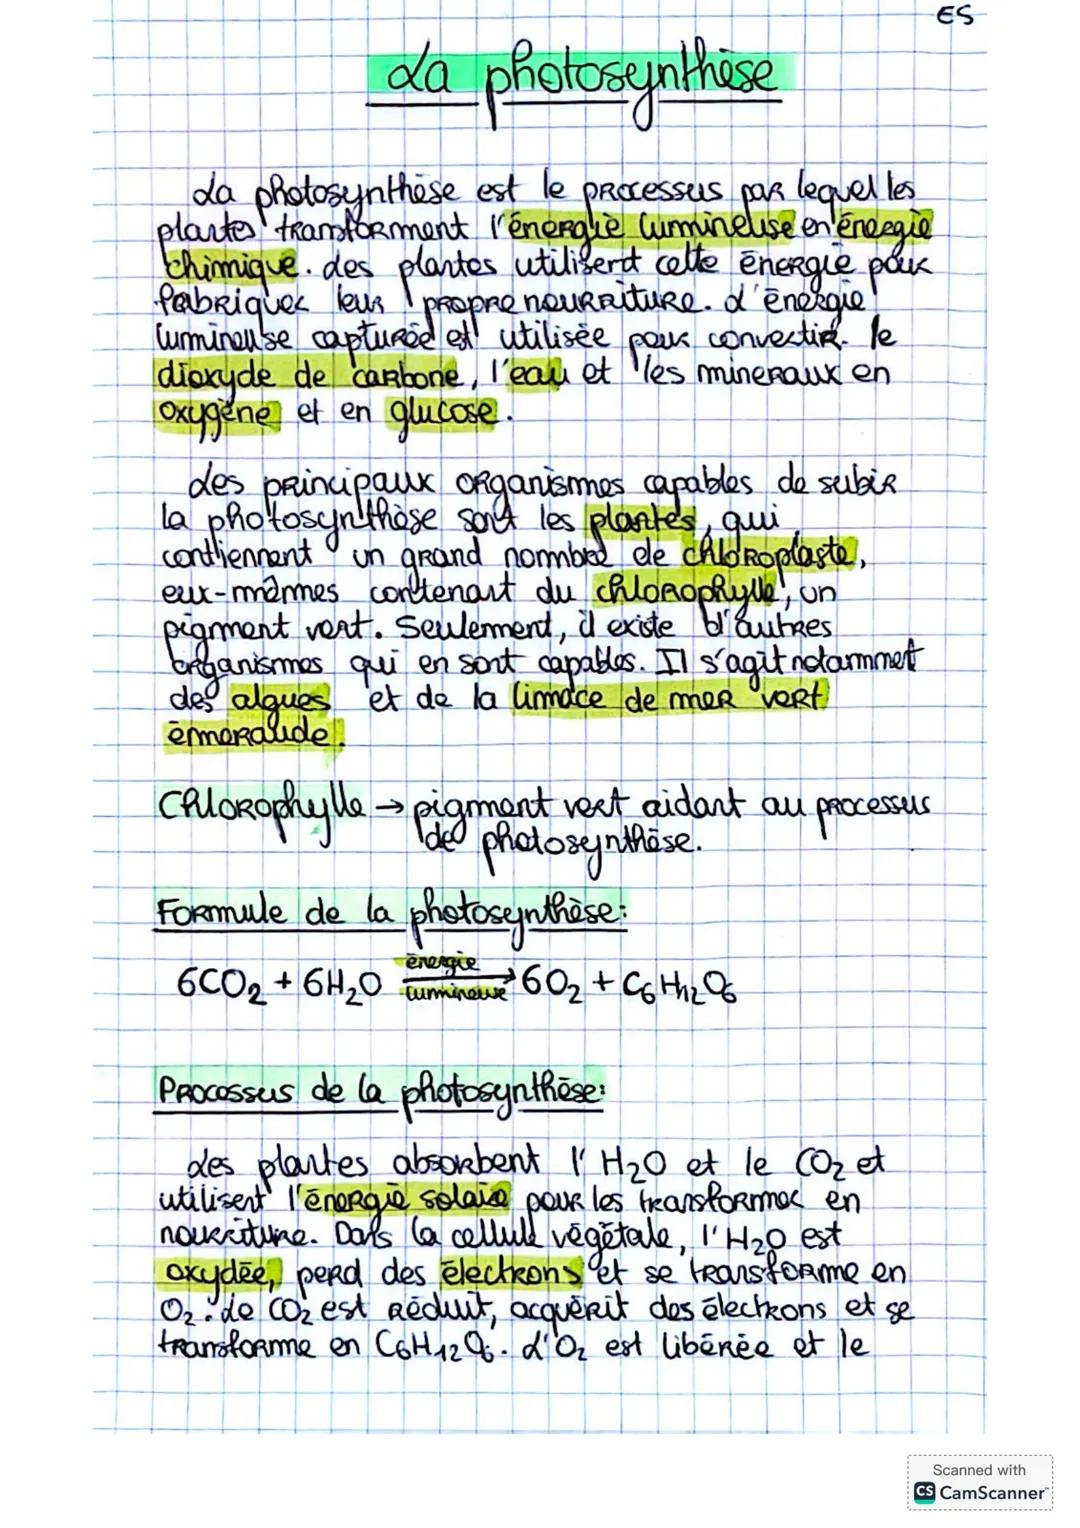 ES
La photosynthèse
La photosynthèse est le processus par lequel les
plantes transforment l'énergie lumineuse en énergie
chimique. Les plantes utilisent cette énergie pour
fabriquer leur propre nourriture. L'énergie
lumineuse capturée est utilisée pour convertir le
dioxyde de carbone, l'eau et les mineraux en
oxygène et en glucose.
Les principaux organismes capables de subir
la photosynthèse sont les plantes, qui
contiennent un grand nombre de chloroplaste,
eux-mêmes contenant du chlorophylle, un
pigment vert. Seulement, il existe d'autres
organismes qui en sont capables. Il s'agit notammet
des algues et de la limace de mer vert
émeraude.
Chlorophylle → pigment vert aidant au processus
de photosynthèse.
Formule de la photosynthèse:
6CO₂ + 6H₂O énergie lumineuse → 6O₂ + C₆H₁₂O₆
Processus de la photosynthèse:
Les plantes absorbent l'H₂O et le CO₂ et
utilisent l'énergie solaire pour les transformer en
nourriture. Dans la cellule végétale, l'H₂O est
oxydée, perd des électrons et se transforme en
O₂. Le CO₂ est réduit, acquérit des électrons et se
transforme en C₆H₁₂O₆. L'O₂ est libérée et le
Scanned with
CS CamScanner